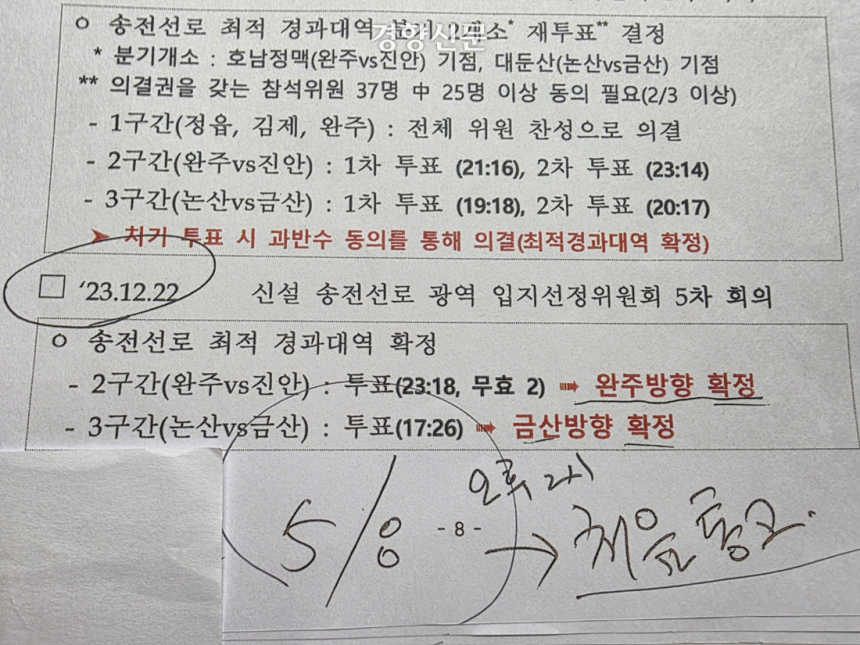 ㅇ 송전선로 최적 경과대역 분기 2개소* 재투표** 결정
경향신문
* 분기개소 : 호남정맥(완주vs진안) 기점, 대둔산(논산vs금산) 기점
** 의결권을 갖는 참석위원 37명 中 25명 이상 동의 필요(2/3 이상)
- 1구간(정읍, 김제, 완주) : 전체 위원 찬성으로 의결
- 2구간(완주vs진안) : 1차 투표 (21:16), 2차 투표 (23:14)
- 3구간(논산vs금산) : 1차 투표 (19:18), 2차 투표 (20:17)
➤ 차기 투표 시 과반수 동의를 통해 의결(최적경과대역 확정)
□ ‘23.12.22 신설 송전선로 광역 입지선정위원회 5차 회의
ㅇ 송전선로 최적 경과대역 확정
- 2구간(완주vs진안) : 투표(23:18, 무효 2) ➠ 완주방향 확정
- 3구간(논산vs금산) : 투표(17:26) ➠ 금산방향 확정
오후 2시
5/8 → 처음 통고.
- 8 -